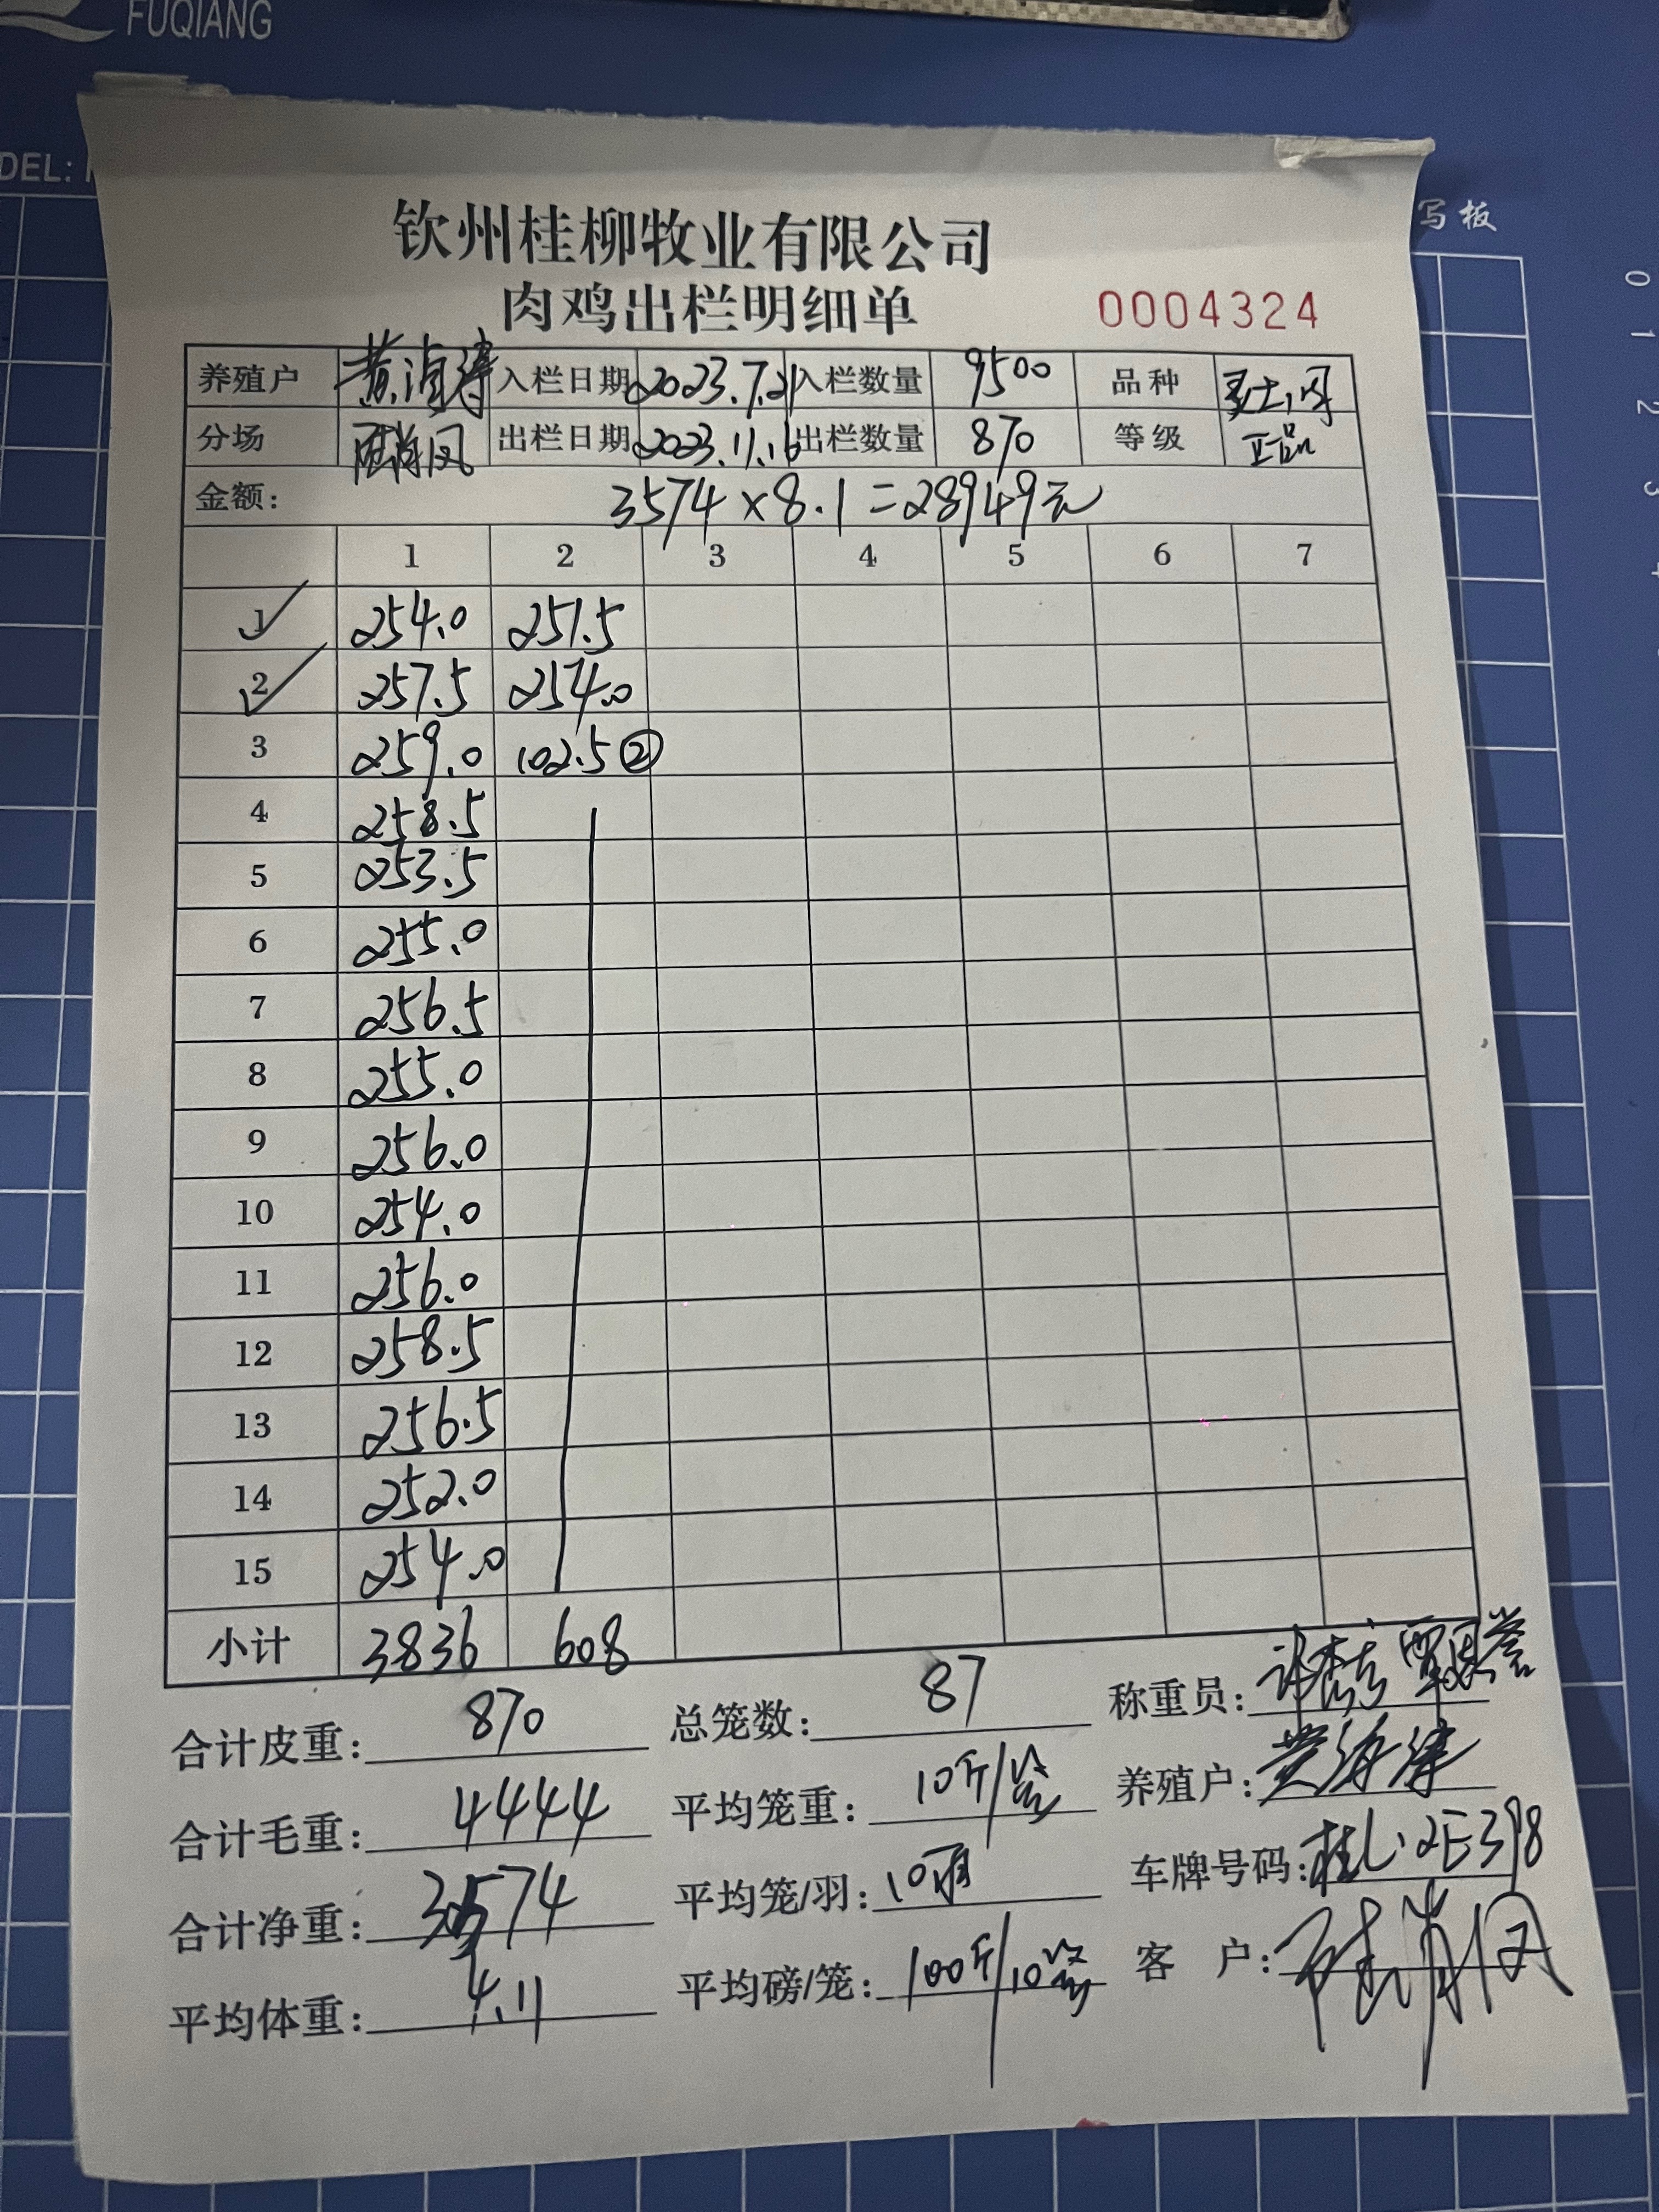 FUQIANG
DEL:
写板
钦州桂柳牧业有限公司
肉鸡出栏明细单 0004324
养殖户 黄海涛 入栏日期 2023.7.21 入栏数量 9500 品种
分场 陆肖凤 出栏日期 2023.11.16 出栏数量 870 等级 正品
金额: 3574×8.1=28949元
1 2 3 4 5 6 7
1 254.0 251.5
2 257.5 254.0
3 259.0 102.5②
4 258.5
5 253.5
6 255.0
7 256.5
8 255.0
9 256.0
10 254.0
11 256.0
12 258.5
13 256.5
14 252.0
15 254.0
小计 3836 608
合计皮重: 870 总笼数: 87 称重员:
合计毛重: 4444 平均笼重: 10斤/笼 养殖户: 黄海涛
合计净重: 3574 平均笼/羽: 10羽 车牌号码: 桂L·2E398
平均体重: 4.11 平均磅/笼: 100斤/10笼 客户: 陆肖凤
0
1
2
3